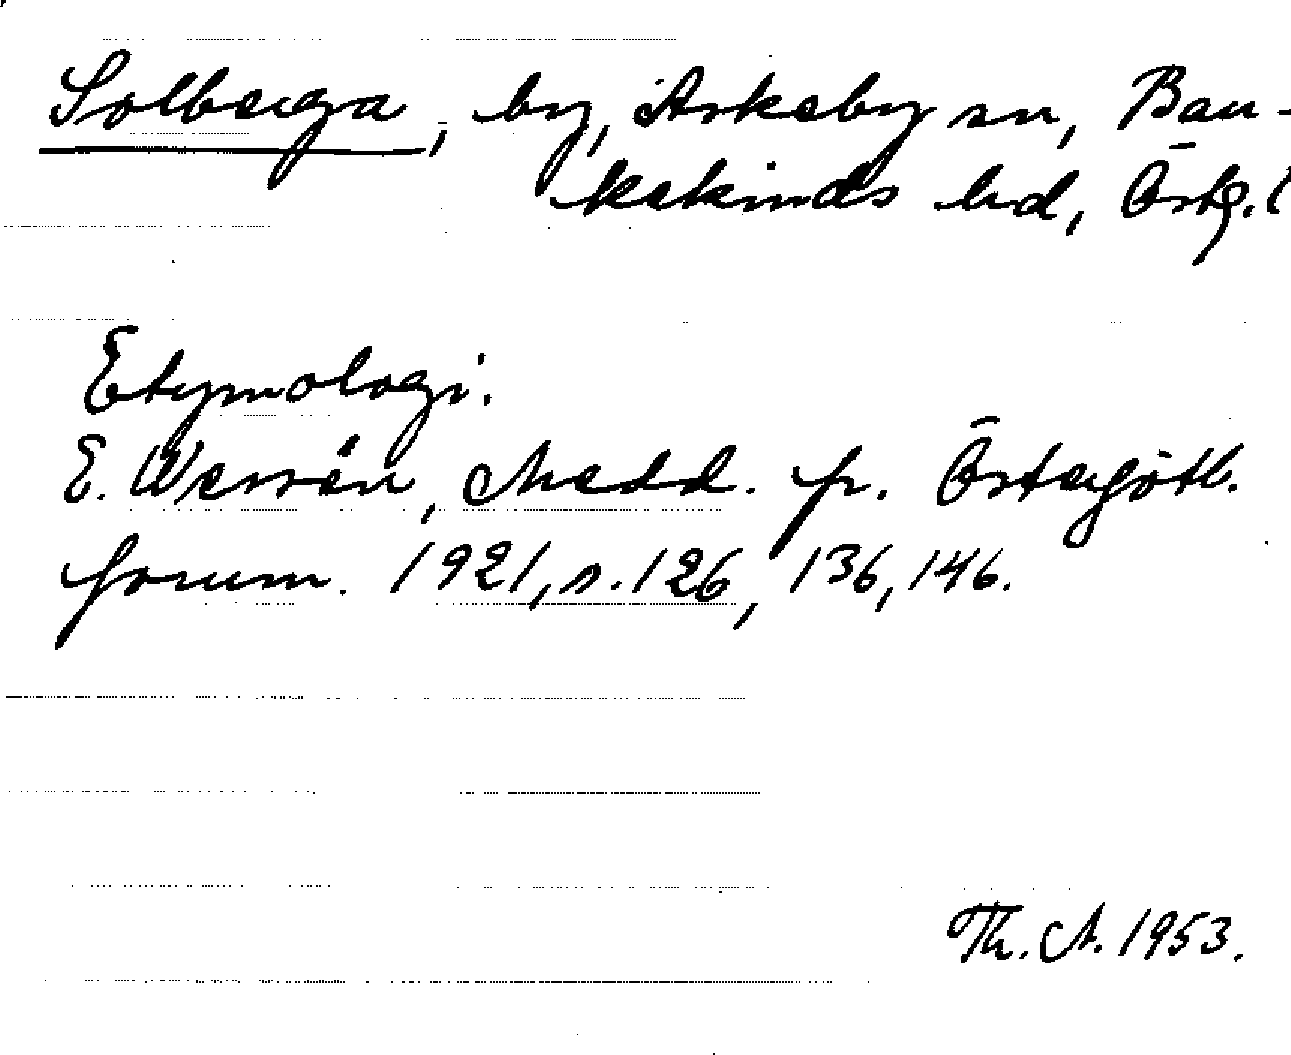 Solberga, by, Askeby sn, Ban-
kekinds hd, Östg.l
Etymologi.
E. Wessén, Medd. fr. Östergötl.
fornm. 1921, s. 126, 136, 146.
Th. A. 1953.